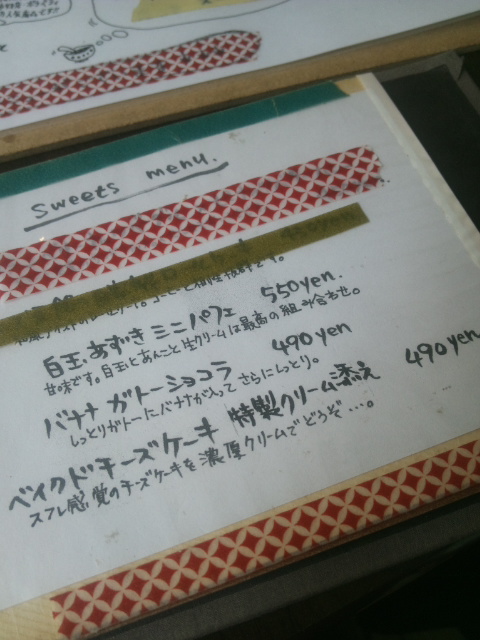 sweets menu.
白玉あずきミニパフェ 550yen.
甘味です。白玉とあんこと生クリームは最高の組み合わせ。
バナナガトーショコラ 490yen
しっとりガトーにバナナが入ってさらにしっとり。
ベイクドチーズケーキ 特製クリーム添え 490yen
スフレ感覚のチーズケーキを濃厚クリームでどうぞ…。